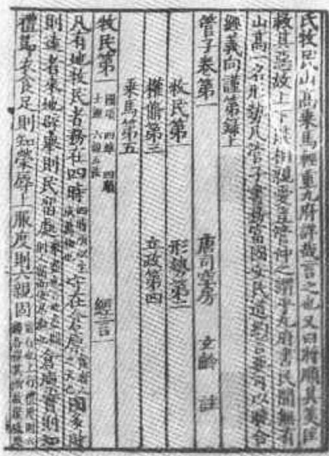 氏牧民山高乘馬輕重九府詳哉言之也又曰將順其美匡
救其惡故上下能相親愛豈管仲之謂乎九府書民間無有
山高一名形勢凡管子書務富國安民道約言要可以曉合
經義向謹第錄上
管子卷第一 唐司空房 玄齡 註
牧民第一 形勢第二
權脩第三 立政第四
乘馬第五
牧民第一 國頌 四維 四順 士經 六親五法 經言
凡有地牧民者務在四時四時所以生成萬物也守在倉廩食者人之天也國多財
則遠者來地辟舉則民留處倉廩實則知
禮節衣食足則知榮辱上服度則六親固